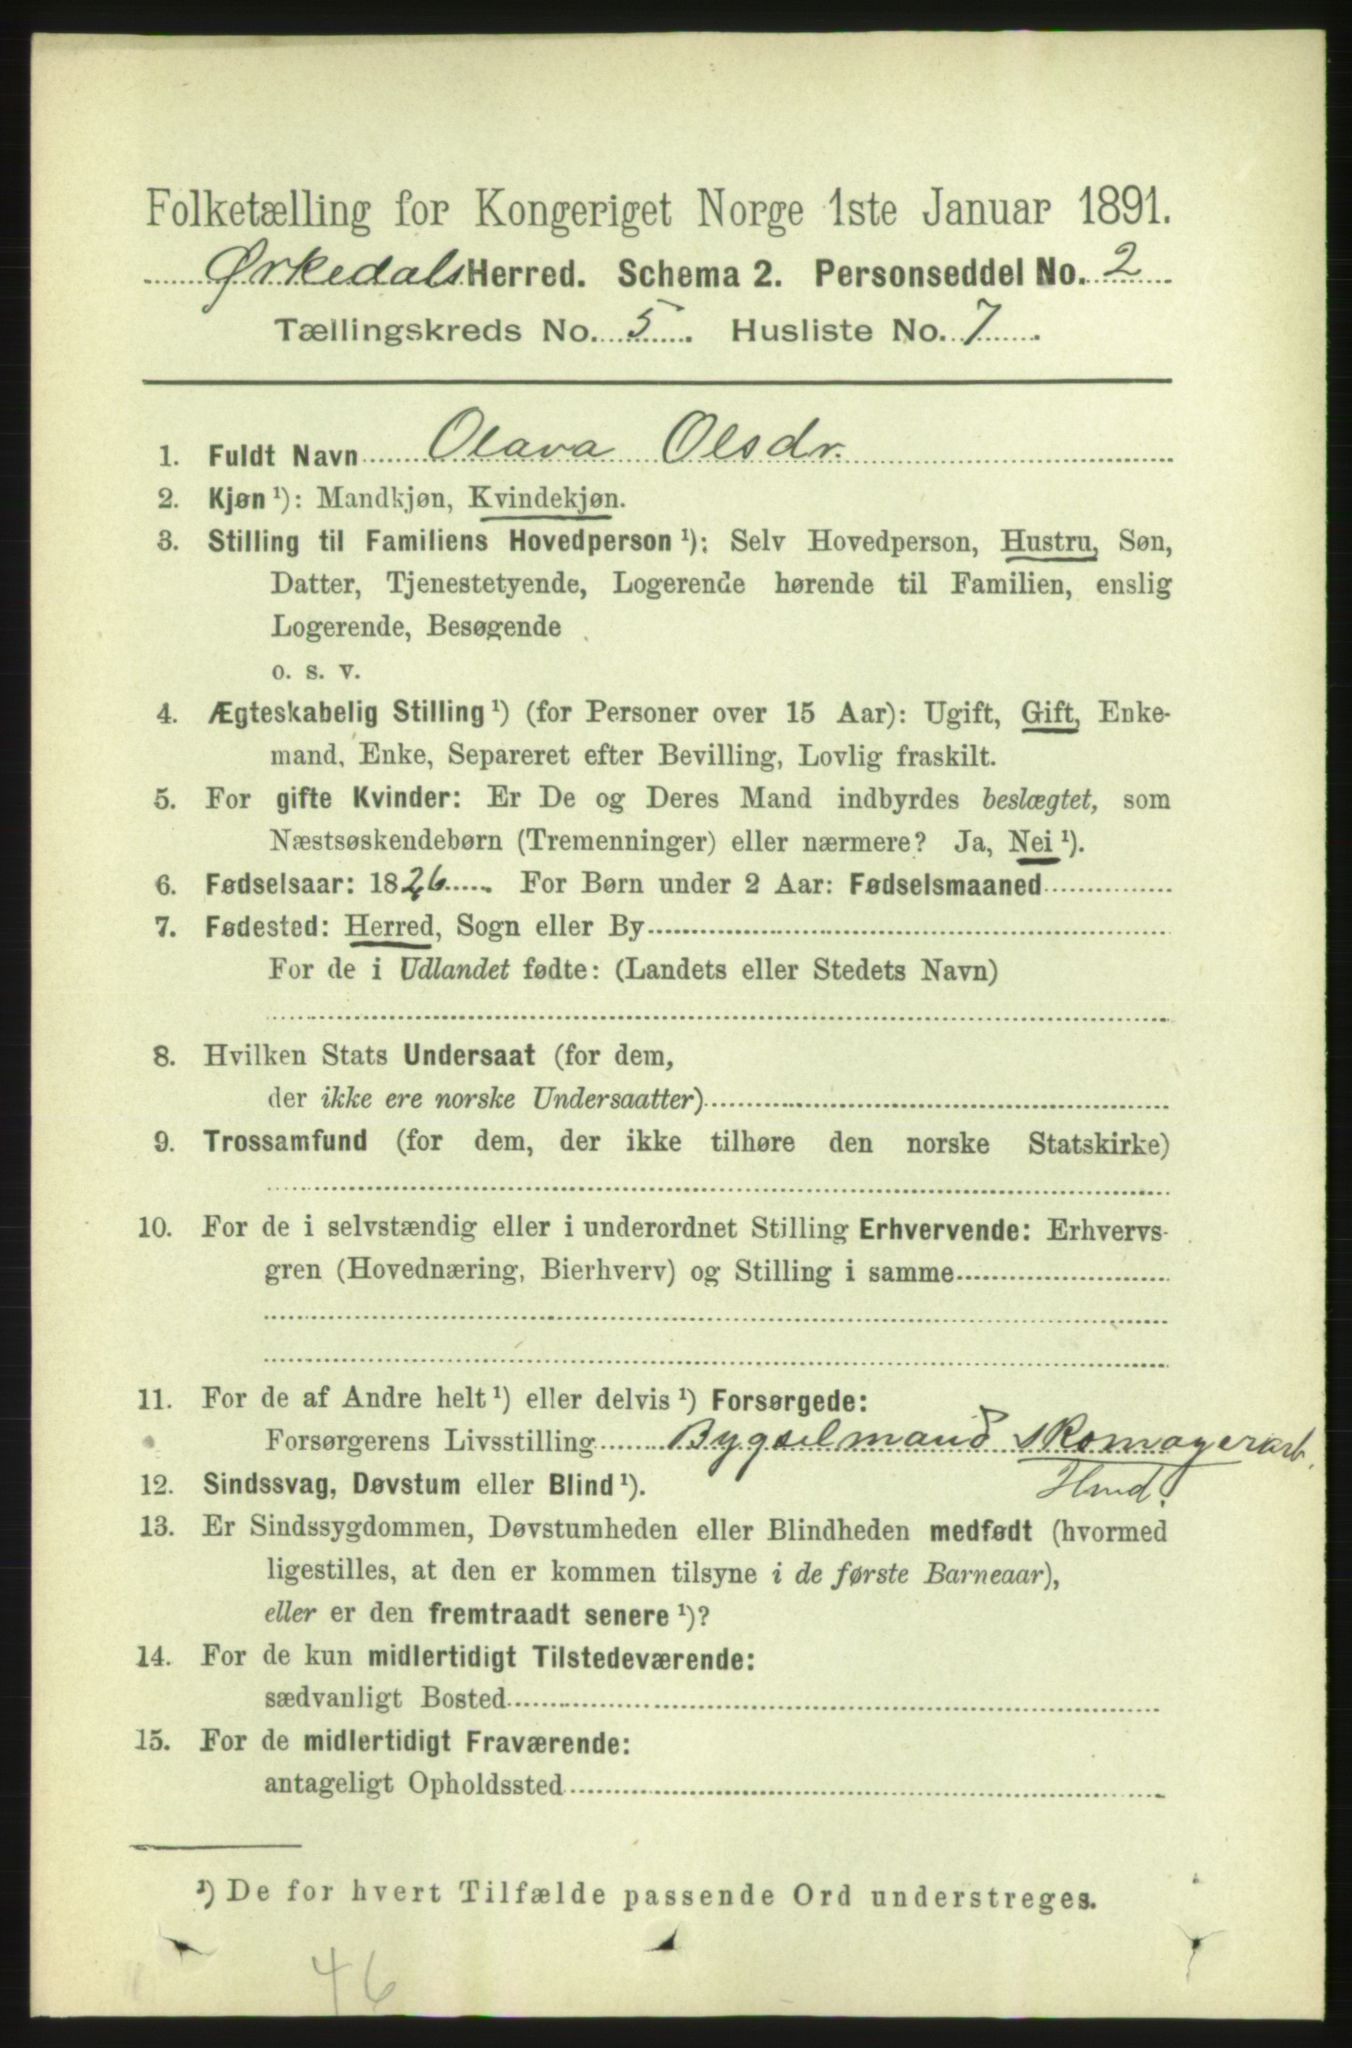 Folketælling for Kongeriget Norge 1ste Januar 1891.
Ørkedals Herred. Schema 2. Personseddel No. 2
Tællingskreds No. 5. Husliste No. 7.
1. Fuldt Navn Olava Olsdr.
2. Kjøn¹): Mandkjøn, Kvindekjøn.
3. Stilling til Familiens Hovedperson¹): Selv Hovedperson, Hustru, Søn,
Datter, Tjenestetyende, Logerende hørende til Familien, enslig
Logerende, Besøgende
o. s. v.
4. Ægteskabelig Stilling¹) (for Personer over 15 Aar): Ugift, Gift, Enke-
mand, Enke, Separeret efter Bevilling, Lovlig fraskilt.
5. For gifte Kvinder: Er De og Deres Mand indbyrdes beslægtet, som
Næstsøskendebørn (Tremenninger) eller nærmere? Ja, Nei¹).
6. Fødselsaar: 1826. For Børn under 2 Aar: Fødselsmaaned
7. Fødested: Herred, Sogn eller By
For de i Udlandet fødte: (Landets eller Stedets Navn)
8. Hvilken Stats Undersaat (for dem,
der ikke ere norske Undersaatter)
9. Trossamfund (for dem, der ikke tilhøre den norske Statskirke)
10. For de i selvstændig eller i underordnet Stilling Erhvervende: Erhvervs-
gren (Hovednæring, Bierhverv) og Stilling i samme
11. For de af Andre helt¹) eller delvis¹) Forsørgede:
Forsørgerens Livsstilling Bygselmand skomagerarb.
12. Sindssvag, Døvstum eller Blind¹).
13. Er Sindssygdommen, Døvstumheden eller Blindheden medfødt (hvormed
ligestilles, at den er kommen tilsyne i de første Barneaar),
eller er den fremtraadt senere¹)?
14. For de kun midlertidigt Tilstedeværende:
sædvanligt Bosted
15. For de midlertidigt Fraværende:
antageligt Opholdssted
¹) De for hvert Tilfælde passende Ord understreges.
46